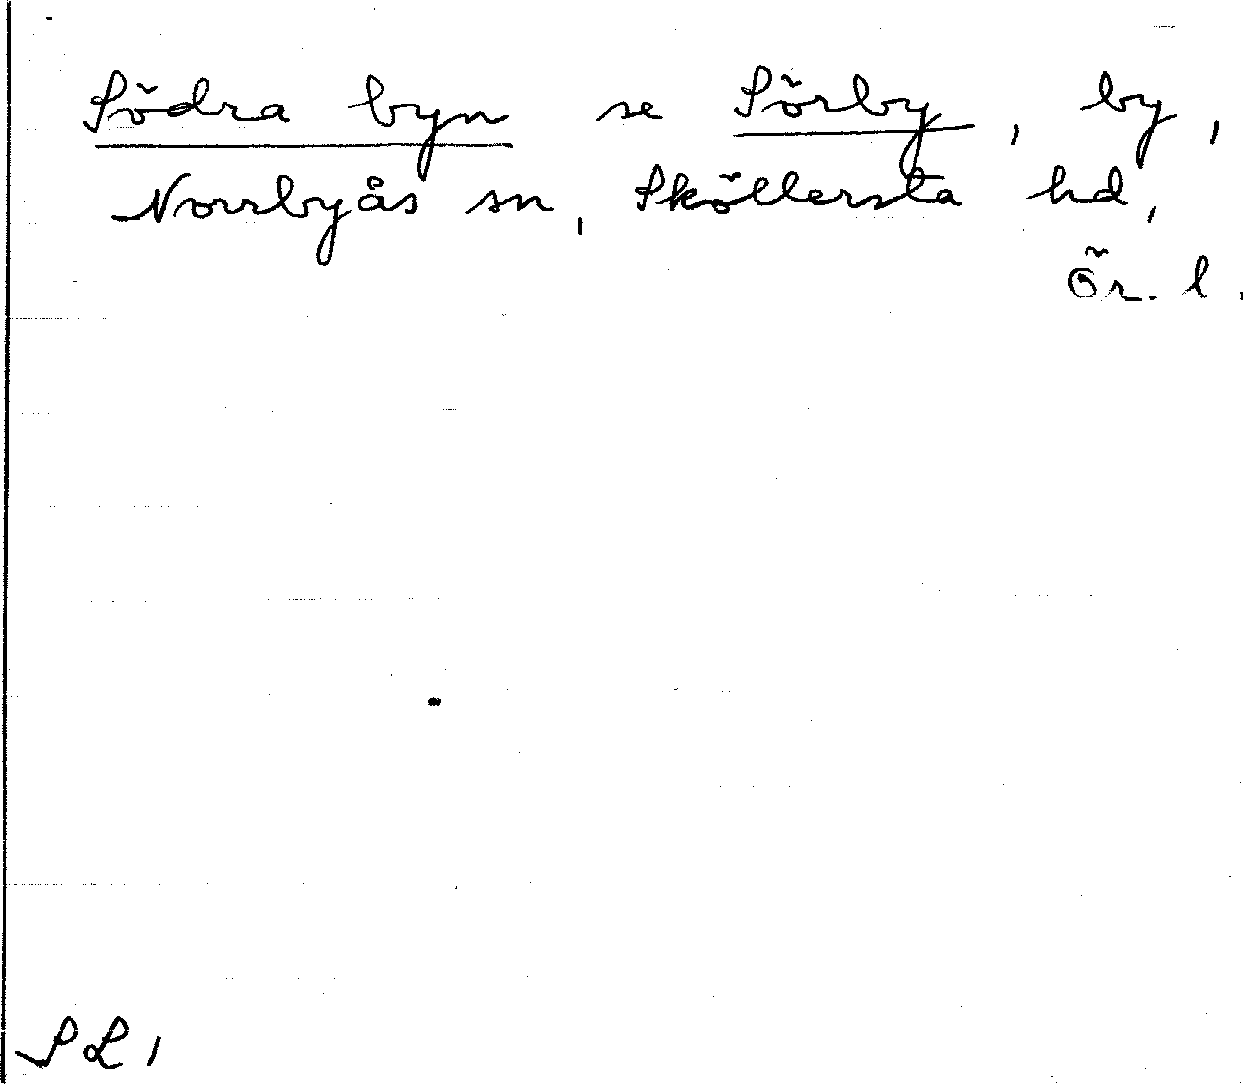 Södra byn se Sörby, by,
Norrbyås sn, Sköllersta hd,
Ör. l.
SL 1